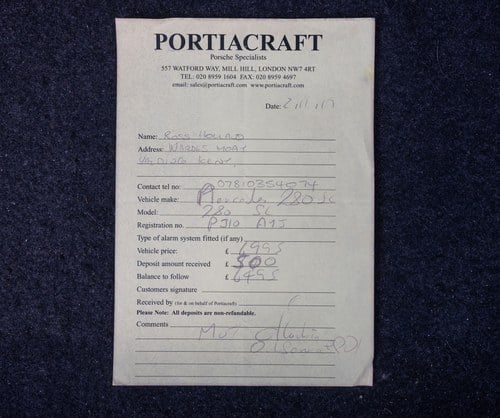 PORTIACRAFT
Porsche Specialists
557 WATFORD WAY, MILL HILL, LONDON NW7 4RT
TEL: 020 8959 1604 FAX: 020 8959 4697
email: sales@portiacraft.com www.portiacraft.com
Date: 2/1/17
Name: ROSS HOLLAND
Address: WARDES MOAT
YALDING KENT,
Contact tel no: 07810354074
Vehicle make: Mercedes 280 SL
Model: 280 SL
Registration no: PJ10 A
Type of alarm system fitted (if any)
Vehicle price: £ 6995
Deposit amount received £ 500
Balance to follow £ 6495
Customers signature
Received by (for & on behalf of Portiacraft)
Please Note: All deposits are non-refundable.
Comments
MOT